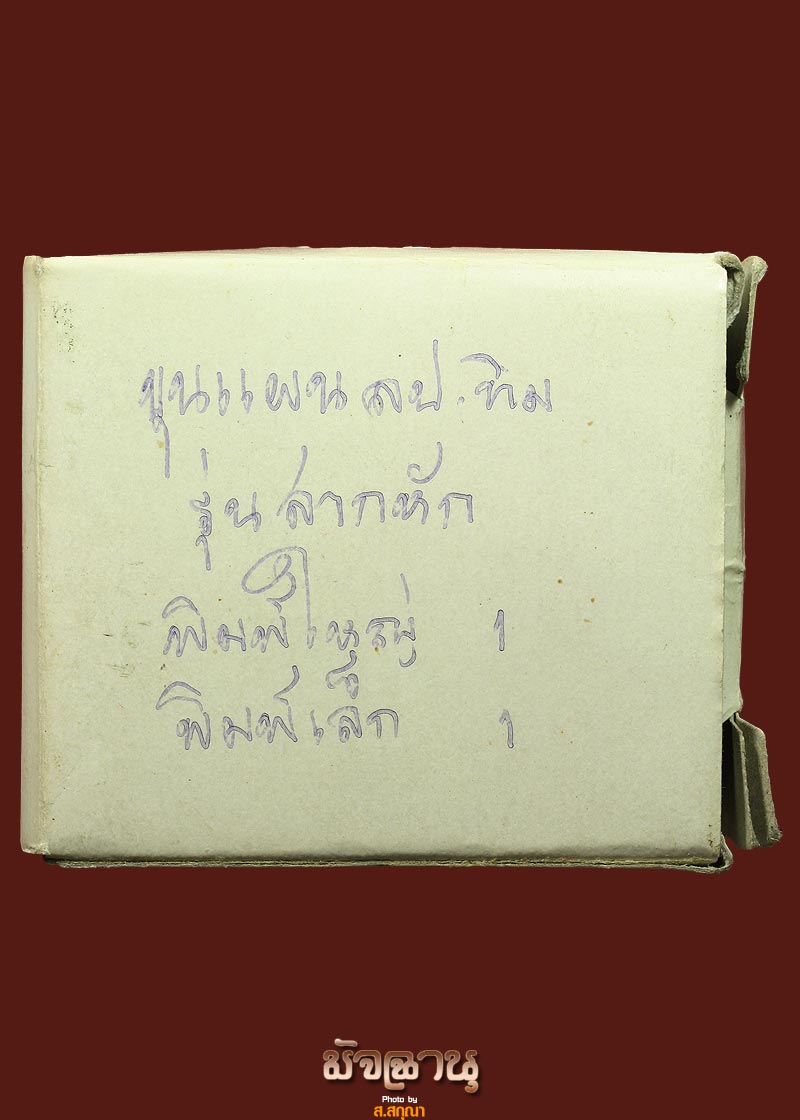 ขุนแผน ลป.ทิม
รุ่นสากหัก
พิมพ์ใหญ่ 1
พิมพ์เล็ก 1
Photo by
ส.สกุณา